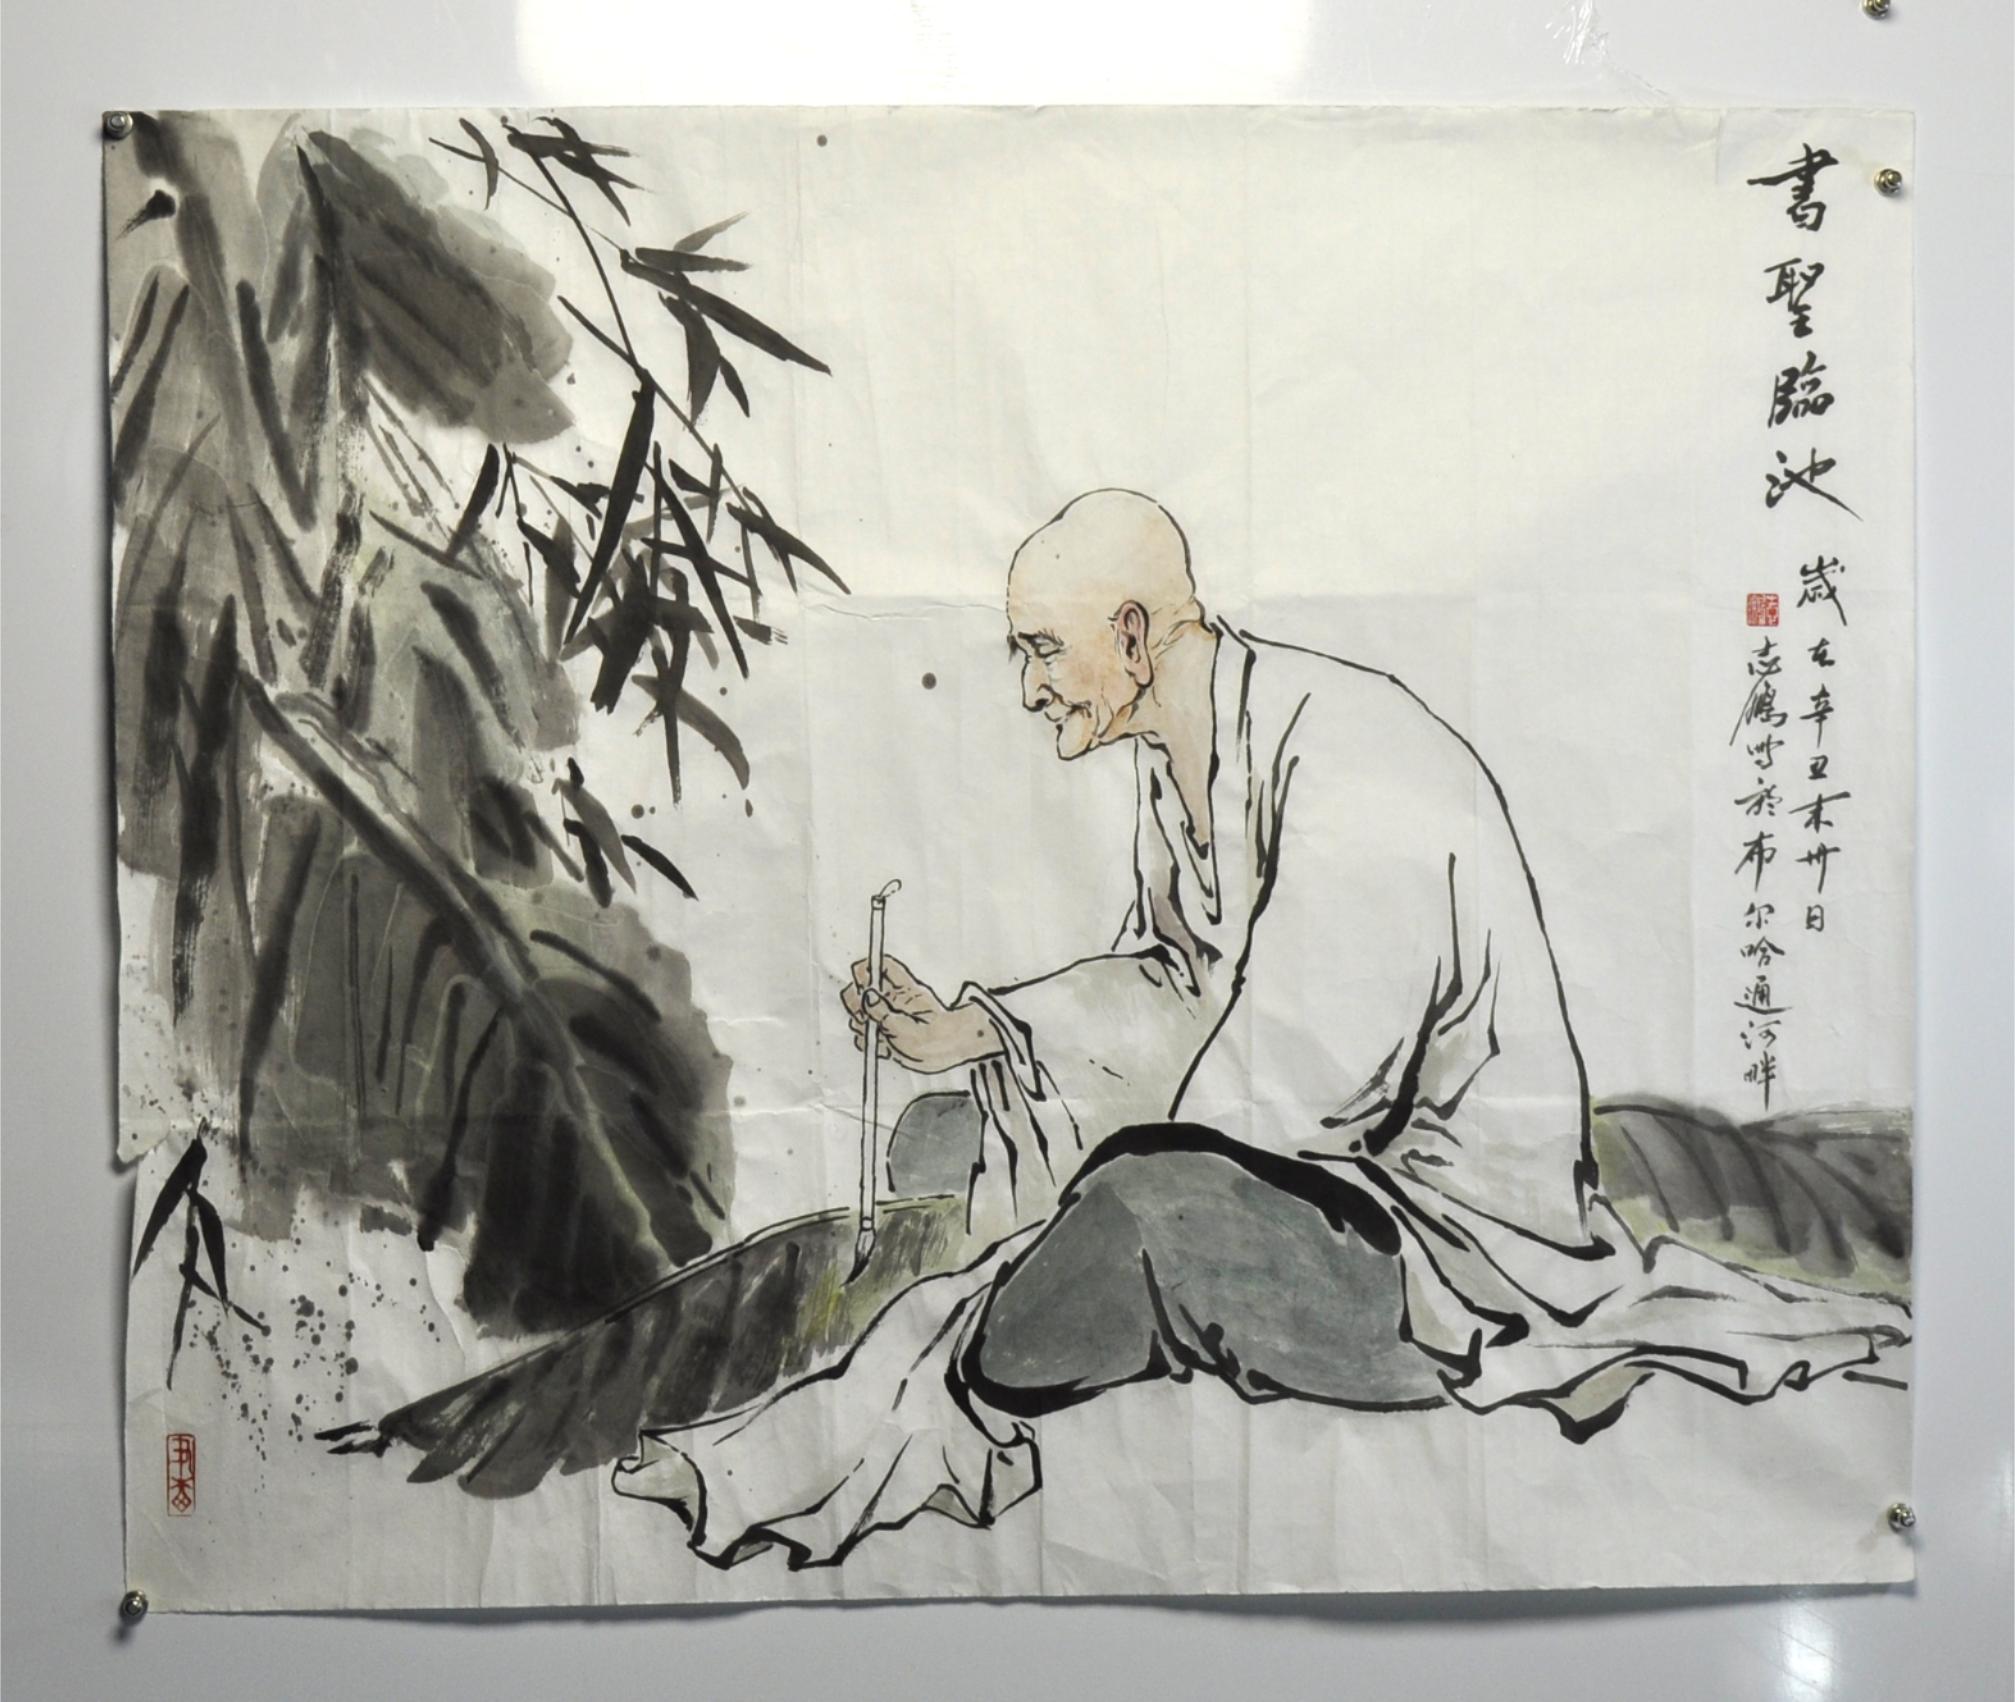 書聖臨池
歲在辛丑末卅日
志鵬寫於布尔哈通河畔